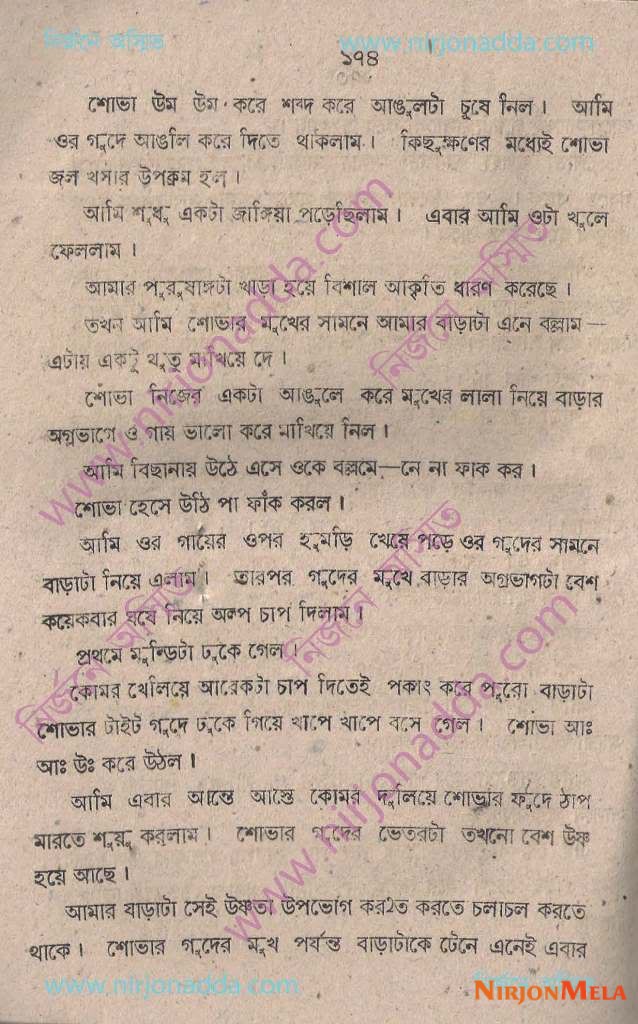 নির্জনে অস্মিত www.nirjonadda.com
১৭৪
শোভা উম উম করে শব্দ করে আঙুলটা চুষে নিল। আমি
ওর গুদে আঙলি করে দিতে থাকলাম। কিছুক্ষণের মধ্যেই শোভা
জল খসার উপক্রম হল।
আমি শুধু একটা জাঙ্গিয়া পড়েছিলাম। এবার আমি ওটা খুলে
ফেললাম।
আমার পুরুষাঙ্গটা খাড়া হয়ে বিশাল আকৃতি ধারণ করেছে।
তখন আমি শোভার মুখের সামনে আমার বাড়াটা এনে বল্লাম—
এটায় একটু থুতু মাখিয়ে দে।
শোভা নিজের একটা আঙুলে করে মুখের লালা নিয়ে বাড়ার
অগ্রভাগে ও গায় ভালো করে মাখিয়ে নিল।
আমি বিছানায় উঠে এসে ওকে বল্লমে—নে না ফাক কর।
শোভা হেসে উঠি পা ফাঁক করল।
আমি ওর গায়ের ওপর হুমড়ি খেয়ে পড়ে ওর গুদের সামনে
বাড়াটা নিয়ে এলাম। তারপর গুদের মুখে বাড়ার অগ্রভাগটা বেশ
কয়েকবার ঘষে নিয়ে অল্প চাপ দিলাম।
প্রথমে মুন্ডিটা ঢুকে গেল।
কোমর খেলিয়ে আরেকটা চাপ দিতেই পকাৎ করে পুরো বাড়াটা
শোভার টাইট গুদে ঢুকে গিয়ে খাপে খাপে বসে গেল। শোভা আঃ
আঃ উঃ করে উঠল।
আমি এবার আস্তে আস্তে কোমর দুলিয়ে শোভার ফুদে ঠাপ
মারতে শুরু করলাম। শোভার গুদের ভেতরটা তখনো বেশ উষ্ণ
হয়ে আছে।
আমার বাড়াটা সেই উষ্ণতা উপভোগ করতে করতে চলাচল করতে
থাকে। শোভার গুদের মুখ পর্যন্ত বাড়াটাকে টেনে এনেই এবার
www.nirjonadda.com
NIRJONMELA
www.nirjonadda.com
নির্জনে অস্মিত
নির্জনে অস্মিত
নির্জনে অস্মিত
www.nirjonadda.com